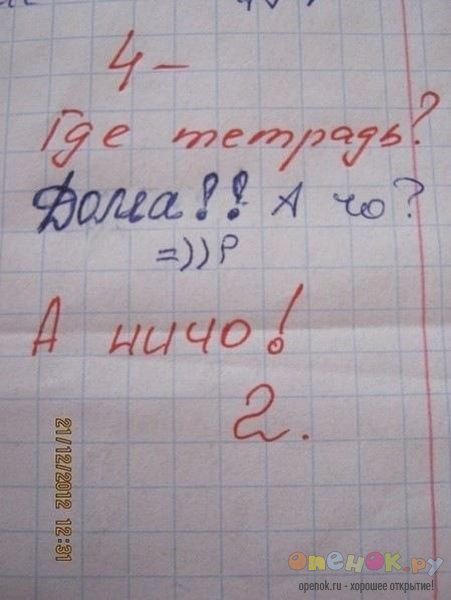 4-
Где тетрадь?
Дома!! А чо?
=))Р
А ничо!
2.
21/12/2012 12:31
опенок.ру
openok.ru - хорошее открытие!